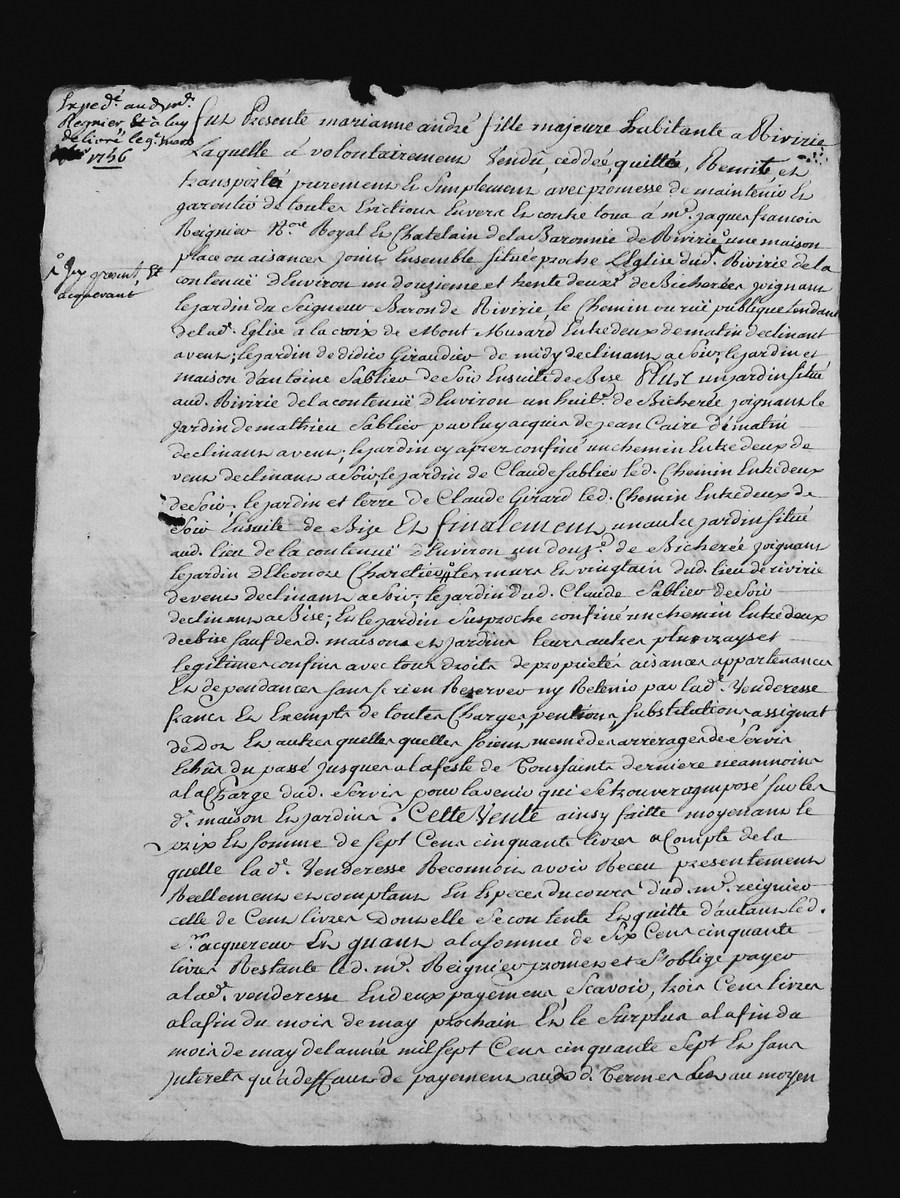 Expedé. aud mr.
Regnier, Et a luy
delivré le 9e. mars
1756
fut Presente marianne andré fille majeure habitante a Rivirie
Laquelle á volontairement Vendü, ceddée, quittée, Remité, et
transporté purement et Simplement avec promesse de maintenir Et
garentir de toutes Evictions Envers Et contre tous à mr. jaques françois
Reignier Nore. Royal Et Chatelain de la Baronnie de Rivirie, une maison
place ou aisances joint Ensemble située proche L'Eglise dud. Rivirie de la
icy present, Et
acquerant
contenuë D'Environ un douzieme et trente deuxe. de Bicherées joignant
le jardin du Seigneur Baron de Rivirie, le Chemin ou rüe publique tendant
de lad. Eglise a la croix de Mont Musard Entredeux de matin declinant
a vent; le jardin de didier Giraudier de midy declinant a Soir; le jardin et
maison d'antoine Sablier de Soir Ensuite de Bise Plus un jardin situé
aud. Rivirie de la contenuë D'Environ un huite. de Bicherée joignant le
jardin de mathieu Sablier par luy acquis de jean Caire de matin
declinant a vent; le jardin cy après confiné un chemin Entredeux de
vent declinant a Soir, le jardin de Claude Sablier led. Chemin Entredeux
de Soir; le jardin et terre de Claude Girard led. Chemin Entredeux de
Soir Ensuite de Bize Et finalement un autre jardin situé
aud. lieu de la contenuë D'Environ un douze. de Bicherée joignant
le jardin D'Eleonore Charetier les murs Et vingtain dud. lieu de rivirie
de vent declinant a Soir; le jardin dud. Claude Sablier de Soir
declinant a Bise; Et le jardin Susproche confiné un chemin Entredeux
de bize sauf desd. maison et jardins leurs autres plus vrays et
legitimes confins avec tous droits de proprietés aisances appartenances
Et dependances sans se rien Reserver ny Retenir par lad. Venderesse
francs Et Exempts de toutes Charges, pentions, substitutions, assignat
de Dot Et autres quelles quelles soient meme des arrerages de Servis
Echus du passé jusques a la feste de Toussaints derniere neammoins
a la Charge dud. Servis pour l'avenir qui se trouvera imposé sur les
d. maison Et jardins. Cette Vente ainsy faitte moyenant le
prix Et somme de sept Cent cinquante livres a Compte de la
quelle la de. Venderesse Reconnoit avoir Receu presentement
Reellement et comptant En Especes du cours dud. mr. reignier
celle de Cent livres Dont elle se contente Et quitte d'autant led.
sr. acquereur Et quant a la somme de Six Cent cinquante
livres Restante led. mr. Reignier promet et s'oblige payer
a lad. venderesse En deux payements, scavoir, trois Cent livres
a la fin du mois de may prochain Et le Surplus a la fin du
mois de may de l'année mil sept Cent cinquante Sept Et sans
jnterets qu'a deffaut de payement aux d. Termes au moyen